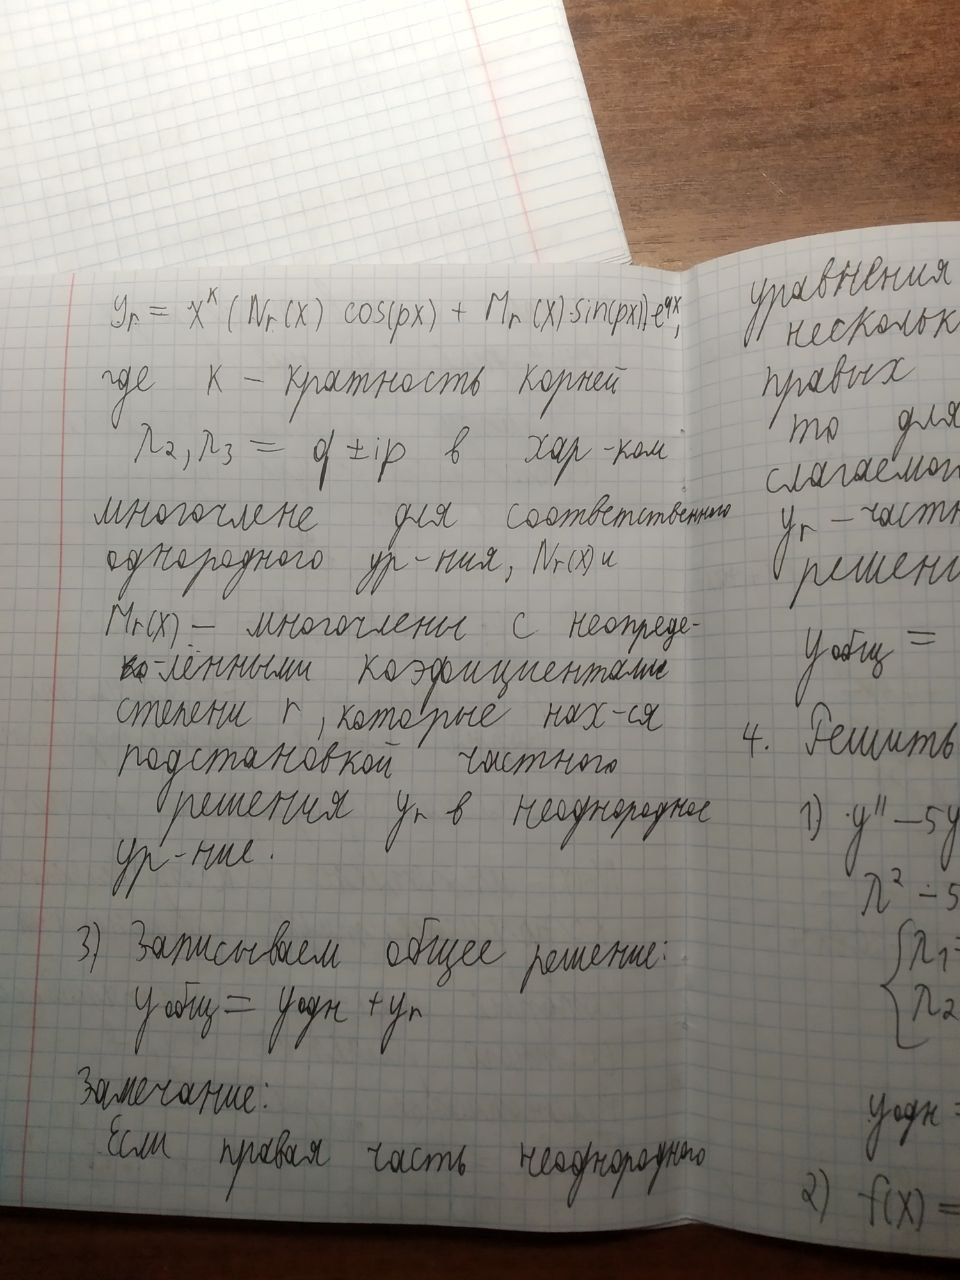 yr = x^k (Nr(x) cos(px) + Mr(x)·sin(px))·e^qx,
где k – кратность корней
λ2, λ3 = q ± ip в хар-ком
многочлене для соответственного
однородного ур-ния, Nr(x) и
Mr(x) – многочлены с неопреде-
лёнными коэфициентами
степени r, которые нах-ся
подстановкой частного
решения yr в неоднородное
ур-ние.
3) Записываем общее решение:
yобщ = yодн + yr
Замечание:
Если правая часть неоднородного
уравнения
нескольк
правых
то для
слагаемог
yr – частн
решени
yобщ =
4. Решить
1) y'' – 5y
λ² – 5
λ1 =
λ2
yодн =
2) f(x) =